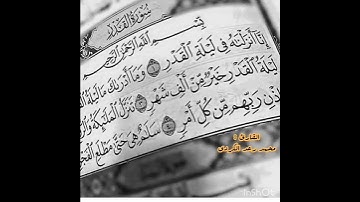 سُورَةُ القَدْرِ
بِسْمِ اللَّهِ الرَّحْمَٰنِ الرَّحِيمِ
إِنَّا أَنزَلْنَاهُ فِي لَيْلَةِ الْقَدْرِ ۝ وَمَا أَدْرَاكَ مَا لَيْلَةُ
لَيْلَةُ الْقَدْرِ خَيْرٌ مِّنْ أَلْفِ شَهْرٍ ۝ تَنَزَّلُ الْمَلَائِكَةُ
إِذْنِ رَبِّهِم مِّن كُلِّ أَمْرٍ ۝ سَلَامٌ هِيَ حَتَّىٰ مَطْلَعِ الْفَجْرِ
القارئ :
محمد رعد الكردي
InShOt